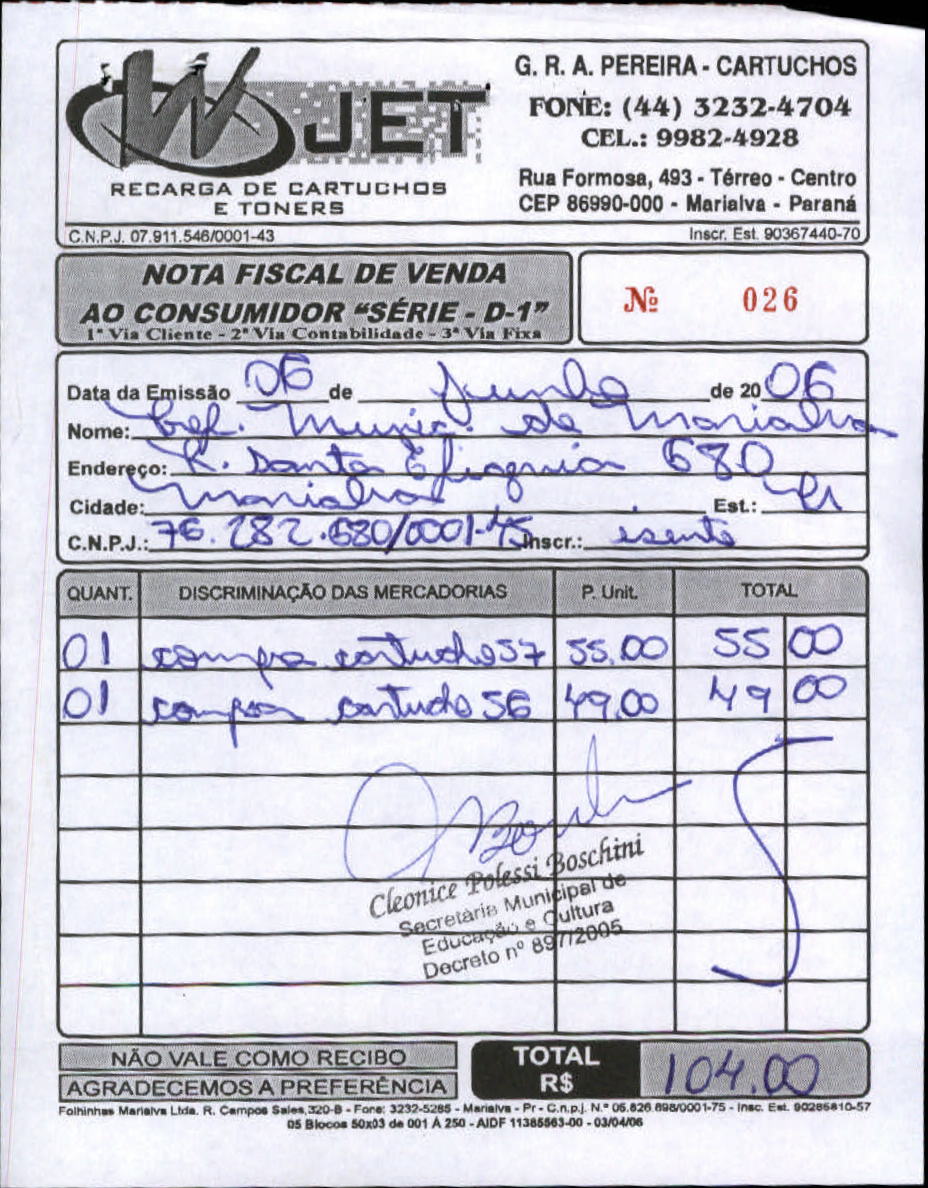 W JET
RECARGA DE CARTUCHOS
E TONERS
C.N.P.J. 07.911.546/0001-43
G. R. A. PEREIRA - CARTUCHOS
FONE: (44) 3232-4704
CEL.: 9982-4928
Rua Formosa, 493 - Térreo - Centro
CEP 86990-000 - Marialva - Paraná
Inscr. Est. 90367440-70
NOTA FISCAL DE VENDA
AO CONSUMIDOR "SÉRIE - D-1"
1ª Via Cliente - 2ª Via Contabilidade - 3ª Via Fixa
Nº 026
Data da Emissão 06 de Junho de 2006
Nome: Pref. Munic. de Marialva
Endereço: R. Santa Efigênia 680
Cidade: Marialva Est.: Pr
C.N.P.J.: 76.282.680/0001-45 Inscr.: isento
QUANT. DISCRIMINAÇÃO DAS MERCADORIAS P. Unit. TOTAL
01 compra cartucho 57 55.00 55 00
01 compra cartucho 56 49.00 49 00
Cleonice Polessi Boschini
Secretária Municipal de
Educação e Cultura
Decreto nº 897/2005
NÃO VALE COMO RECIBO
AGRADECEMOS A PREFERÊNCIA
TOTAL
R$ 104.00
Folhinhas Marialva Ltda. R. Campos Sales, 320-B - Fone: 3232-5285 - Marialva - Pr - C.n.p.j. N.º 05.826.698/0001-75 - Insc. Est. 90286810-57
05 Blocos 50x03 de 001 À 250 - AIDF 11385563-00 - 03/04/06